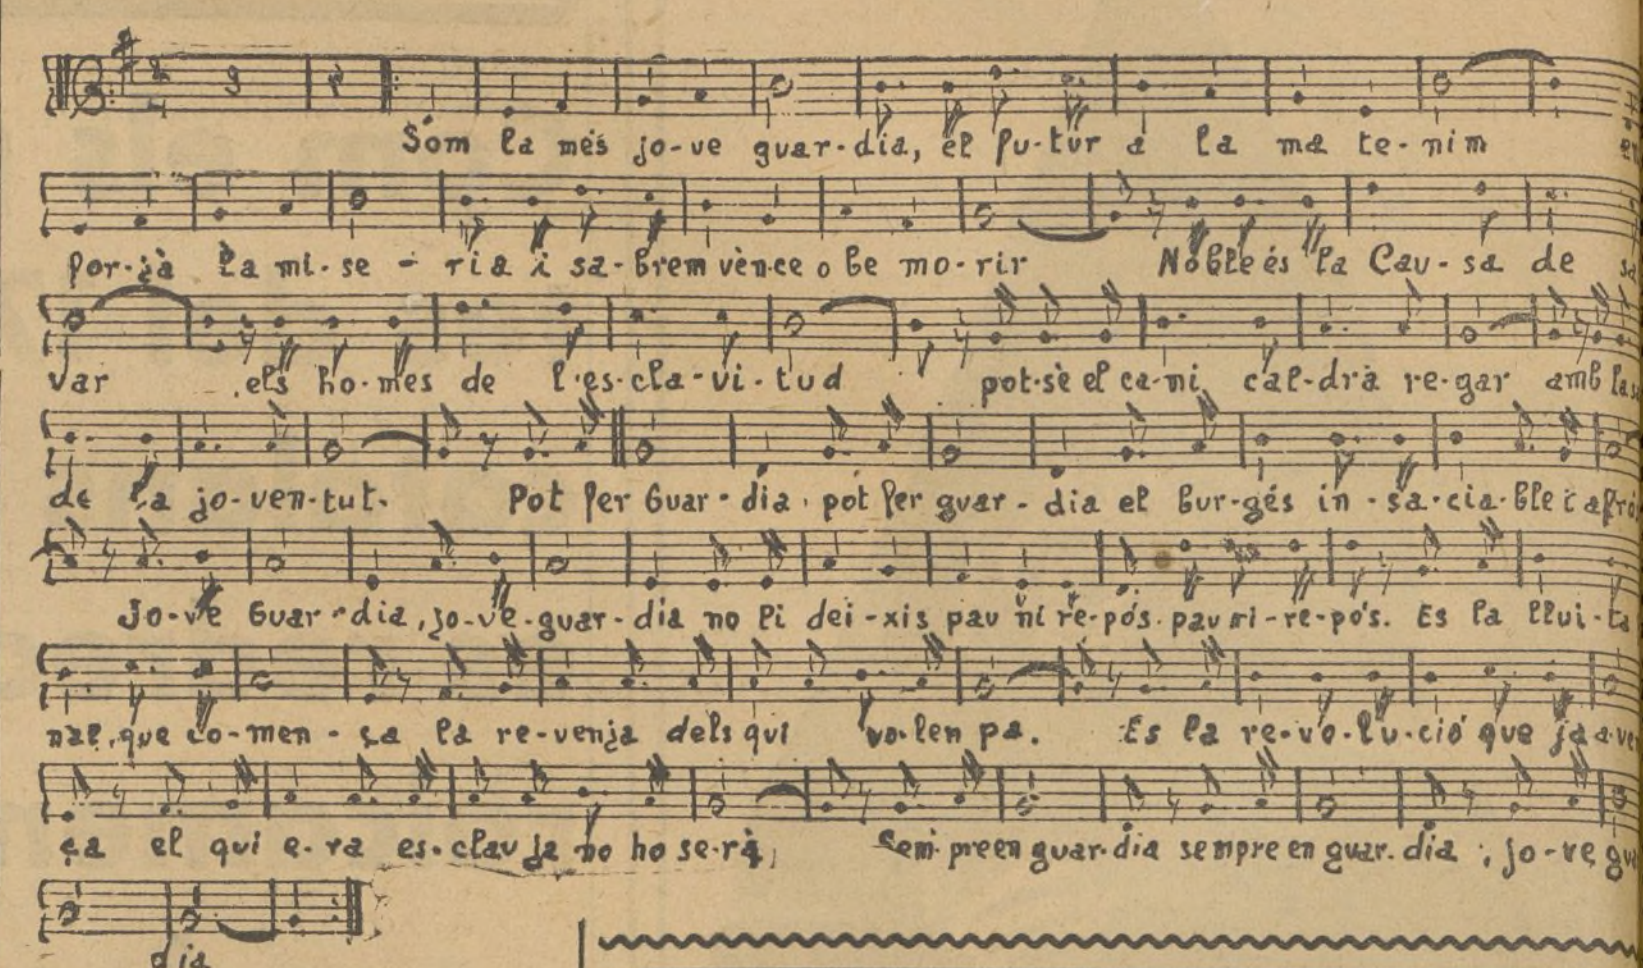 Sóm la més jo-ve guar-dia, el fu-tur a la ma te-nim en
for-jà La mi-se-ria i sa-brem vèn-ce o be mo-rir Noble és la Cau-sa de sal
var els ho-mes de l'es-cla-vi-tud pot-sè el ca-mi cal-drà re-gar amb la
de la jo-ven-tut. Pot fer Guar-dia, pot fer guar-dia el bur-gés in-sa-cia-ble i
Jo-ve Guar-dia, jo-ve-guar-dia no li dei-xis pau ni re-pós. pau ni-re-pós. Es la llui-ta
nal, que co-men-ça la re-venja dels qui vo-len pa. Es la re-vo-lu-ció que ja a-ven
ça el qui e-ra es-clau ja no ho se-rà, Sem-pre en guar-dia sempre en guar-dia, jo-ve gua
dia